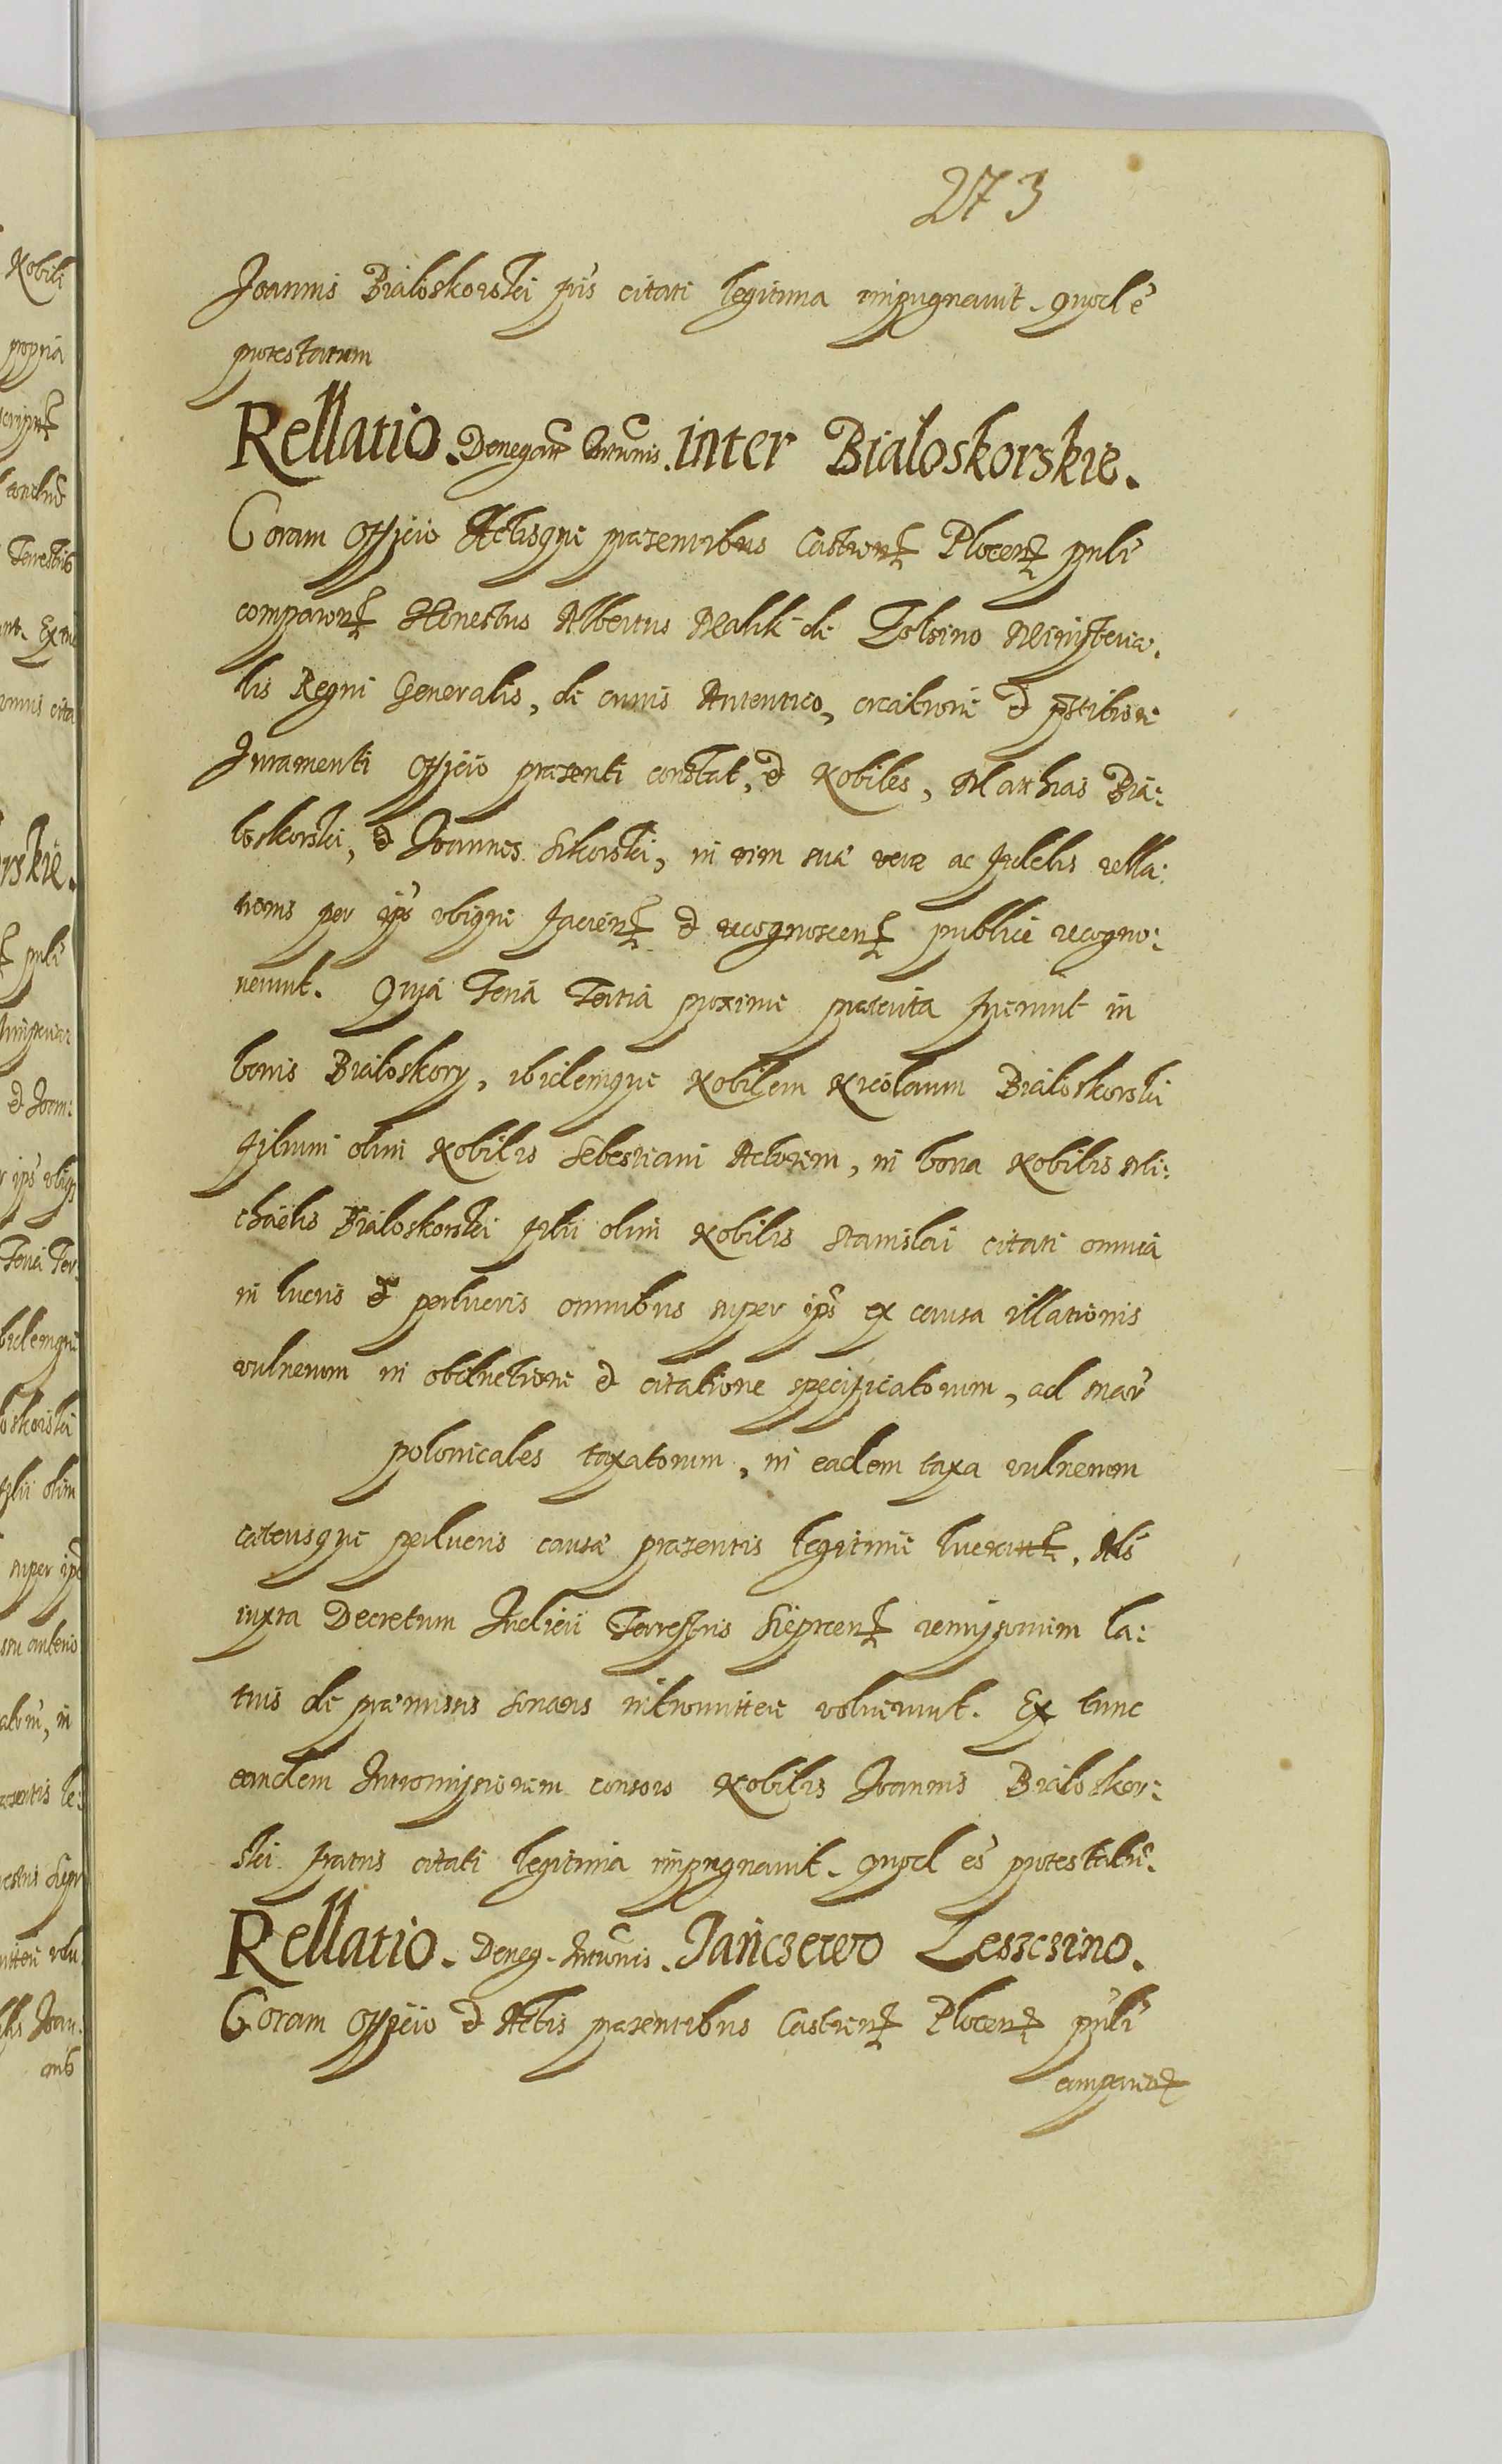 273
Joannis Bialoskorski fris citati legitima impugnavit. quod e
protestatum
Rellatio. Denegatt Intromis. inter Bialoskorskie.
Coram Officio Actisque praesentibus Castren Plocen publi
comparen Honestus Albertus Malik de Ministeria.
lis Regni Generalis, de cuius Autentico, creatione et pstitione
Juramenti Officio praesenti constat, et Nobiles, Mathias Bia:
loskorski, et Joannes Sikorski, in vim sua verae ac fidelis rella:
tionis per ips ubique facien et recognoscen publice recogno:
verunt. Quia Feria Tertia proxime praeterita fuerunt in
bonis Bialoskory, ibidemque Nobilem Nicolaum Bialoskorski
filium olim Nobilis Sebestiani Actorem, in bona Nobilis Mi:
chaelis Bialoskorski filii olim Nobilis Stanislai citati omnia
in lucris et perlucris omnibus super ips ex causa illationis
vulnerum in obductione et citatione specificatorum, ad mar
polonicales taxatorum, in eadem taxa vulnerum
caeterisque perlucris causae praesentis legitime lucrat, Als
iuxta Decretum Judicii Terrestris Sieprcen remissorium la:
tius de praemissis sonans intromittere voluerunt. Ex tunc
eandem Intromissionem consors Nobilis Joannis Bialoskor:
ski fratris citati legitima impugnavit. quod es protestatu.
Rellatio. Deneg. Intromis. Janczewo Leszczino.
Coram Officio et Actis praesentibus Castren Plocen publi
comparen